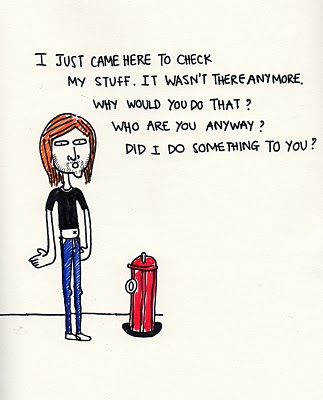 I JUST CAME HERE TO CHECK
MY STUFF. IT WASN'T THERE ANYMORE.
WHY WOULD YOU DO THAT?
WHO ARE YOU ANYWAY?
DID I DO SOMETHING TO YOU?